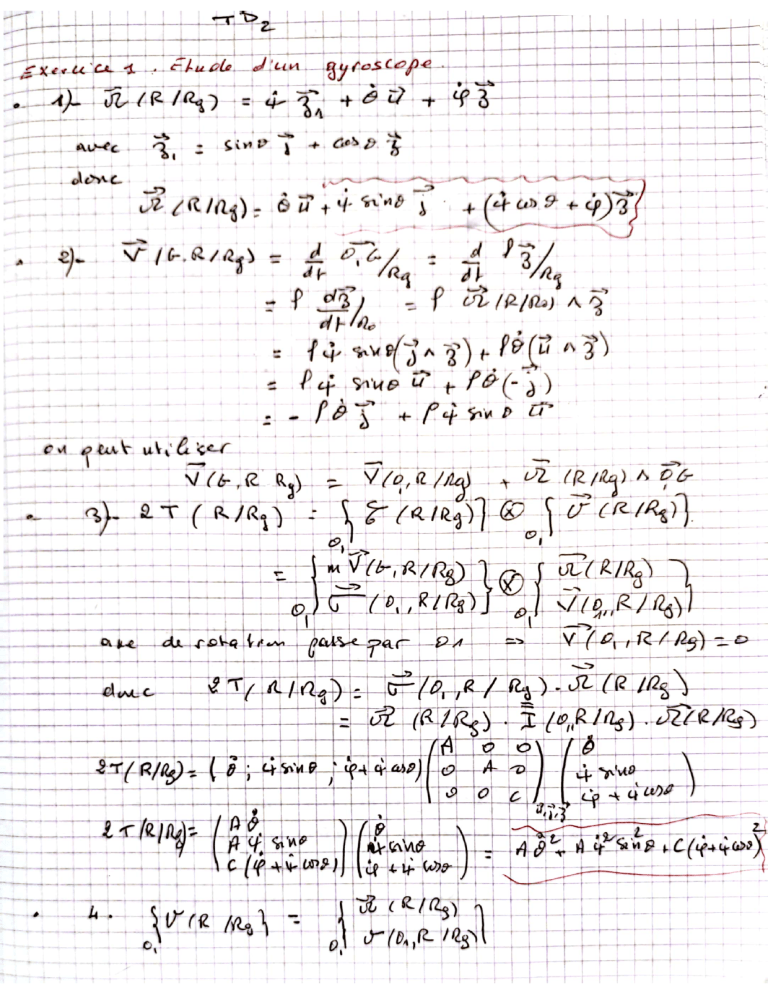 TD2
Exercice 1. Etude d'un gyroscope.
• 1)- Ω⃗ (R/Rg) = ψ̇ z⃗₁ + θ̇ u⃗ + φ̇ z⃗
avec z⃗₁ = sinθ j⃗ + cosθ z⃗
donc
Ω⃗ (R/Rg) = θ̇ u⃗ + ψ̇ sinθ j⃗ + (ψ̇ cosθ + φ̇) z⃗
• 2)- V⃗ (G, R/Rg) = d/dt O₁G⃗ /Rg = d/dt ρ z⃗ /Rg
= ρ dz⃗/dt /R₀ = ρ Ω⃗ (R/R₀) ∧ z⃗
= ρ ψ̇ sinθ (j⃗ ∧ z⃗) + ρ θ̇ (u⃗ ∧ z⃗)
= ρ ψ̇ sinθ u⃗ + ρ θ̇ (-j⃗)
= - ρ θ̇ j⃗ + ρ ψ̇ sinθ u⃗
on peut utiliser
V⃗ (G, R Rg) = V⃗ (O₁, R/Rg) + Ω⃗ (R/Rg) ∧ O₁G⃗
• 3)- 2T (R/Rg) = O₁{ 𝒞 (R/Rg) } ⊗ O₁{ 𝒱⃗ (R/Rg) }
= O₁{ m V⃗ (G, R/Rg) ; σ⃗ (O₁, R/Rg) } ⊗ O₁{ Ω⃗ (R/Rg) ; V⃗ (O₁, R/Rg) }
axe de rotation passe par O1 ⇒ V⃗ (O₁, R/Rg) = 0
donc 2T (R/Rg) = σ⃗ (O₁, R/Rg) . Ω⃗ (R/Rg)
= Ω⃗ (R/Rg) . I̿ (O₁, R/Rg) . Ω⃗ (R/Rg)
2T (R/Rg) = ( θ̇ ; ψ̇ sinθ ; φ̇ + ψ̇ cosθ ) ( A 0 0 ; 0 A 0 ; 0 0 C ) ( θ̇ ; ψ̇ sinθ ; φ̇ + ψ̇ cosθ )
2T (R/Rg) = ( A θ̇ ; A ψ̇ sinθ ; C (φ̇ + ψ̇ cosθ) ) ( θ̇ ; ψ̇ sinθ ; φ̇ + ψ̇ cosθ ) = A θ̇² + A ψ̇² sin²θ + C (φ̇ + ψ̇ cosθ)²
• 4. O₁{ 𝒱 (R/Rg } = O₁{ Ω⃗ (R/Rg) ; v⃗ (O₁, R/Rg) }